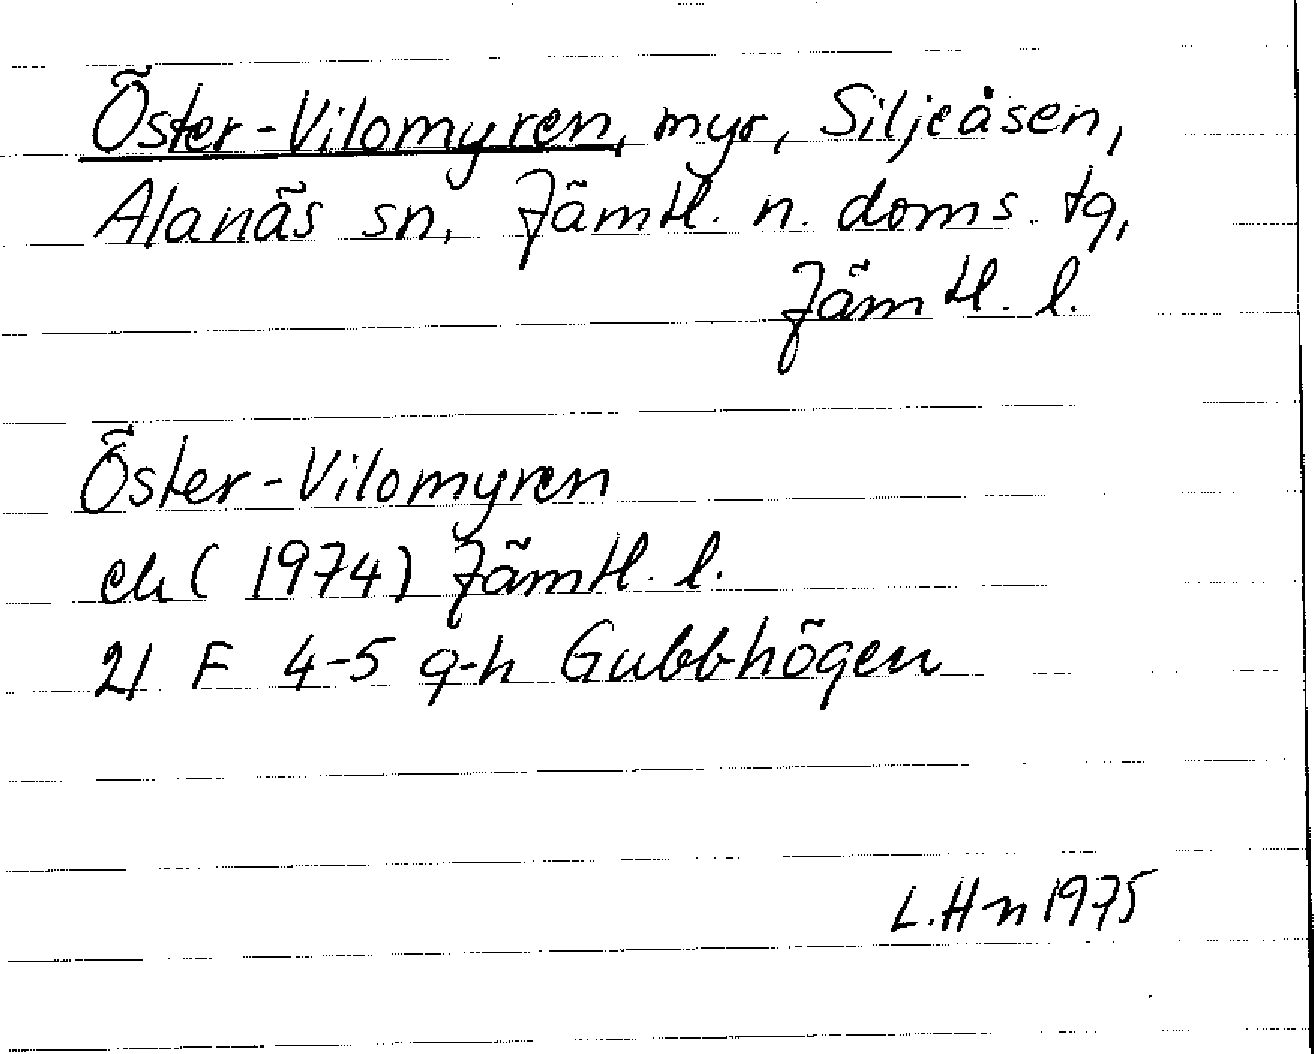 Öster-Vilomyren, myr, Siljeåsen,
Alanäs sn, Jämtl. n. doms. tg,
Jämtl. l.
Öster-Vilomyren
ek (1974) Jämtl. l.
21 F 4-5 g-h Gubbhögen
L. H-n 1975